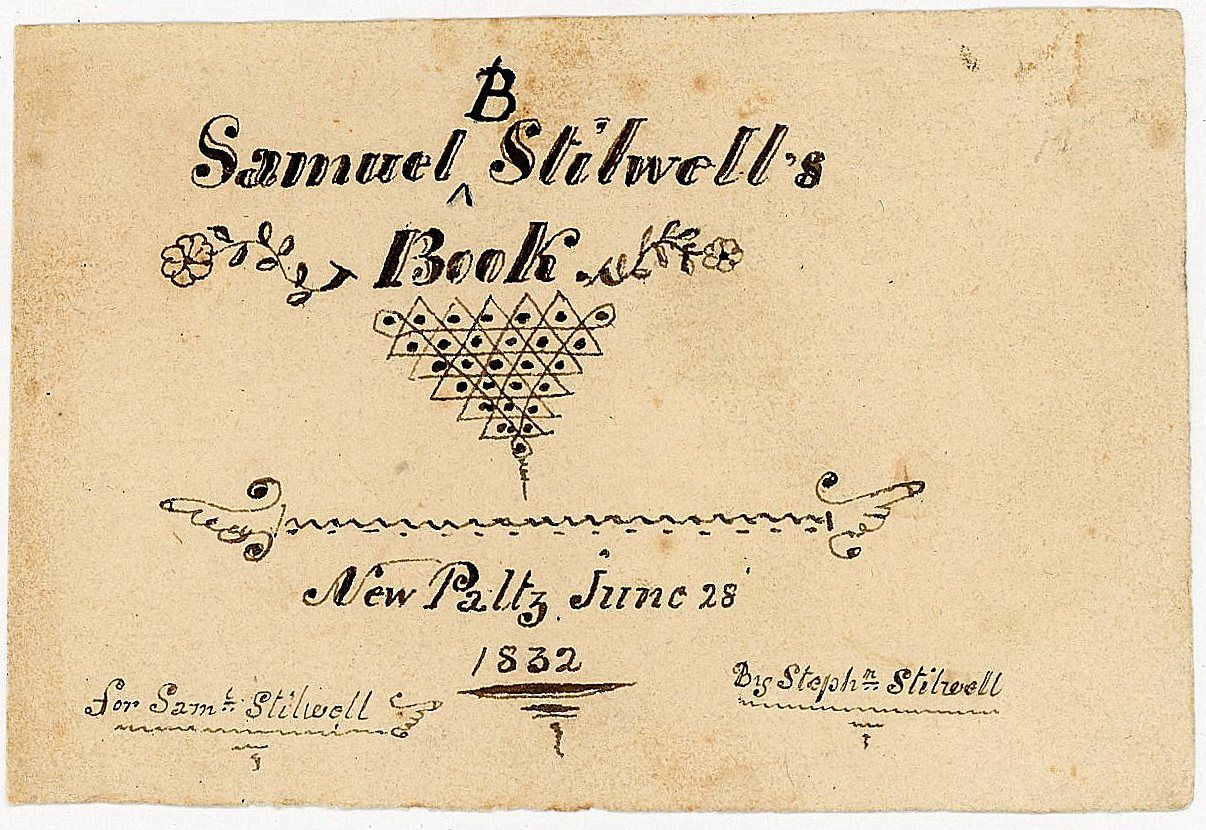 Samuel ^B Stilwell's
Book
New Paltz June 28
1832
for Sam.l Stilwell
By Steph.n Stilwell